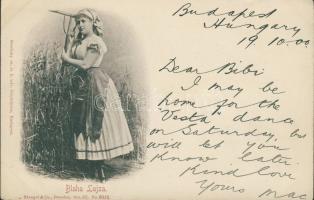 Budapest
Hungary
19.10.00
Dear Bibi
I may be
home for the
"Vesta" dance
on Saturday, but
will let you
know later
Kind love
Yours Mac
Blaha Lujza.